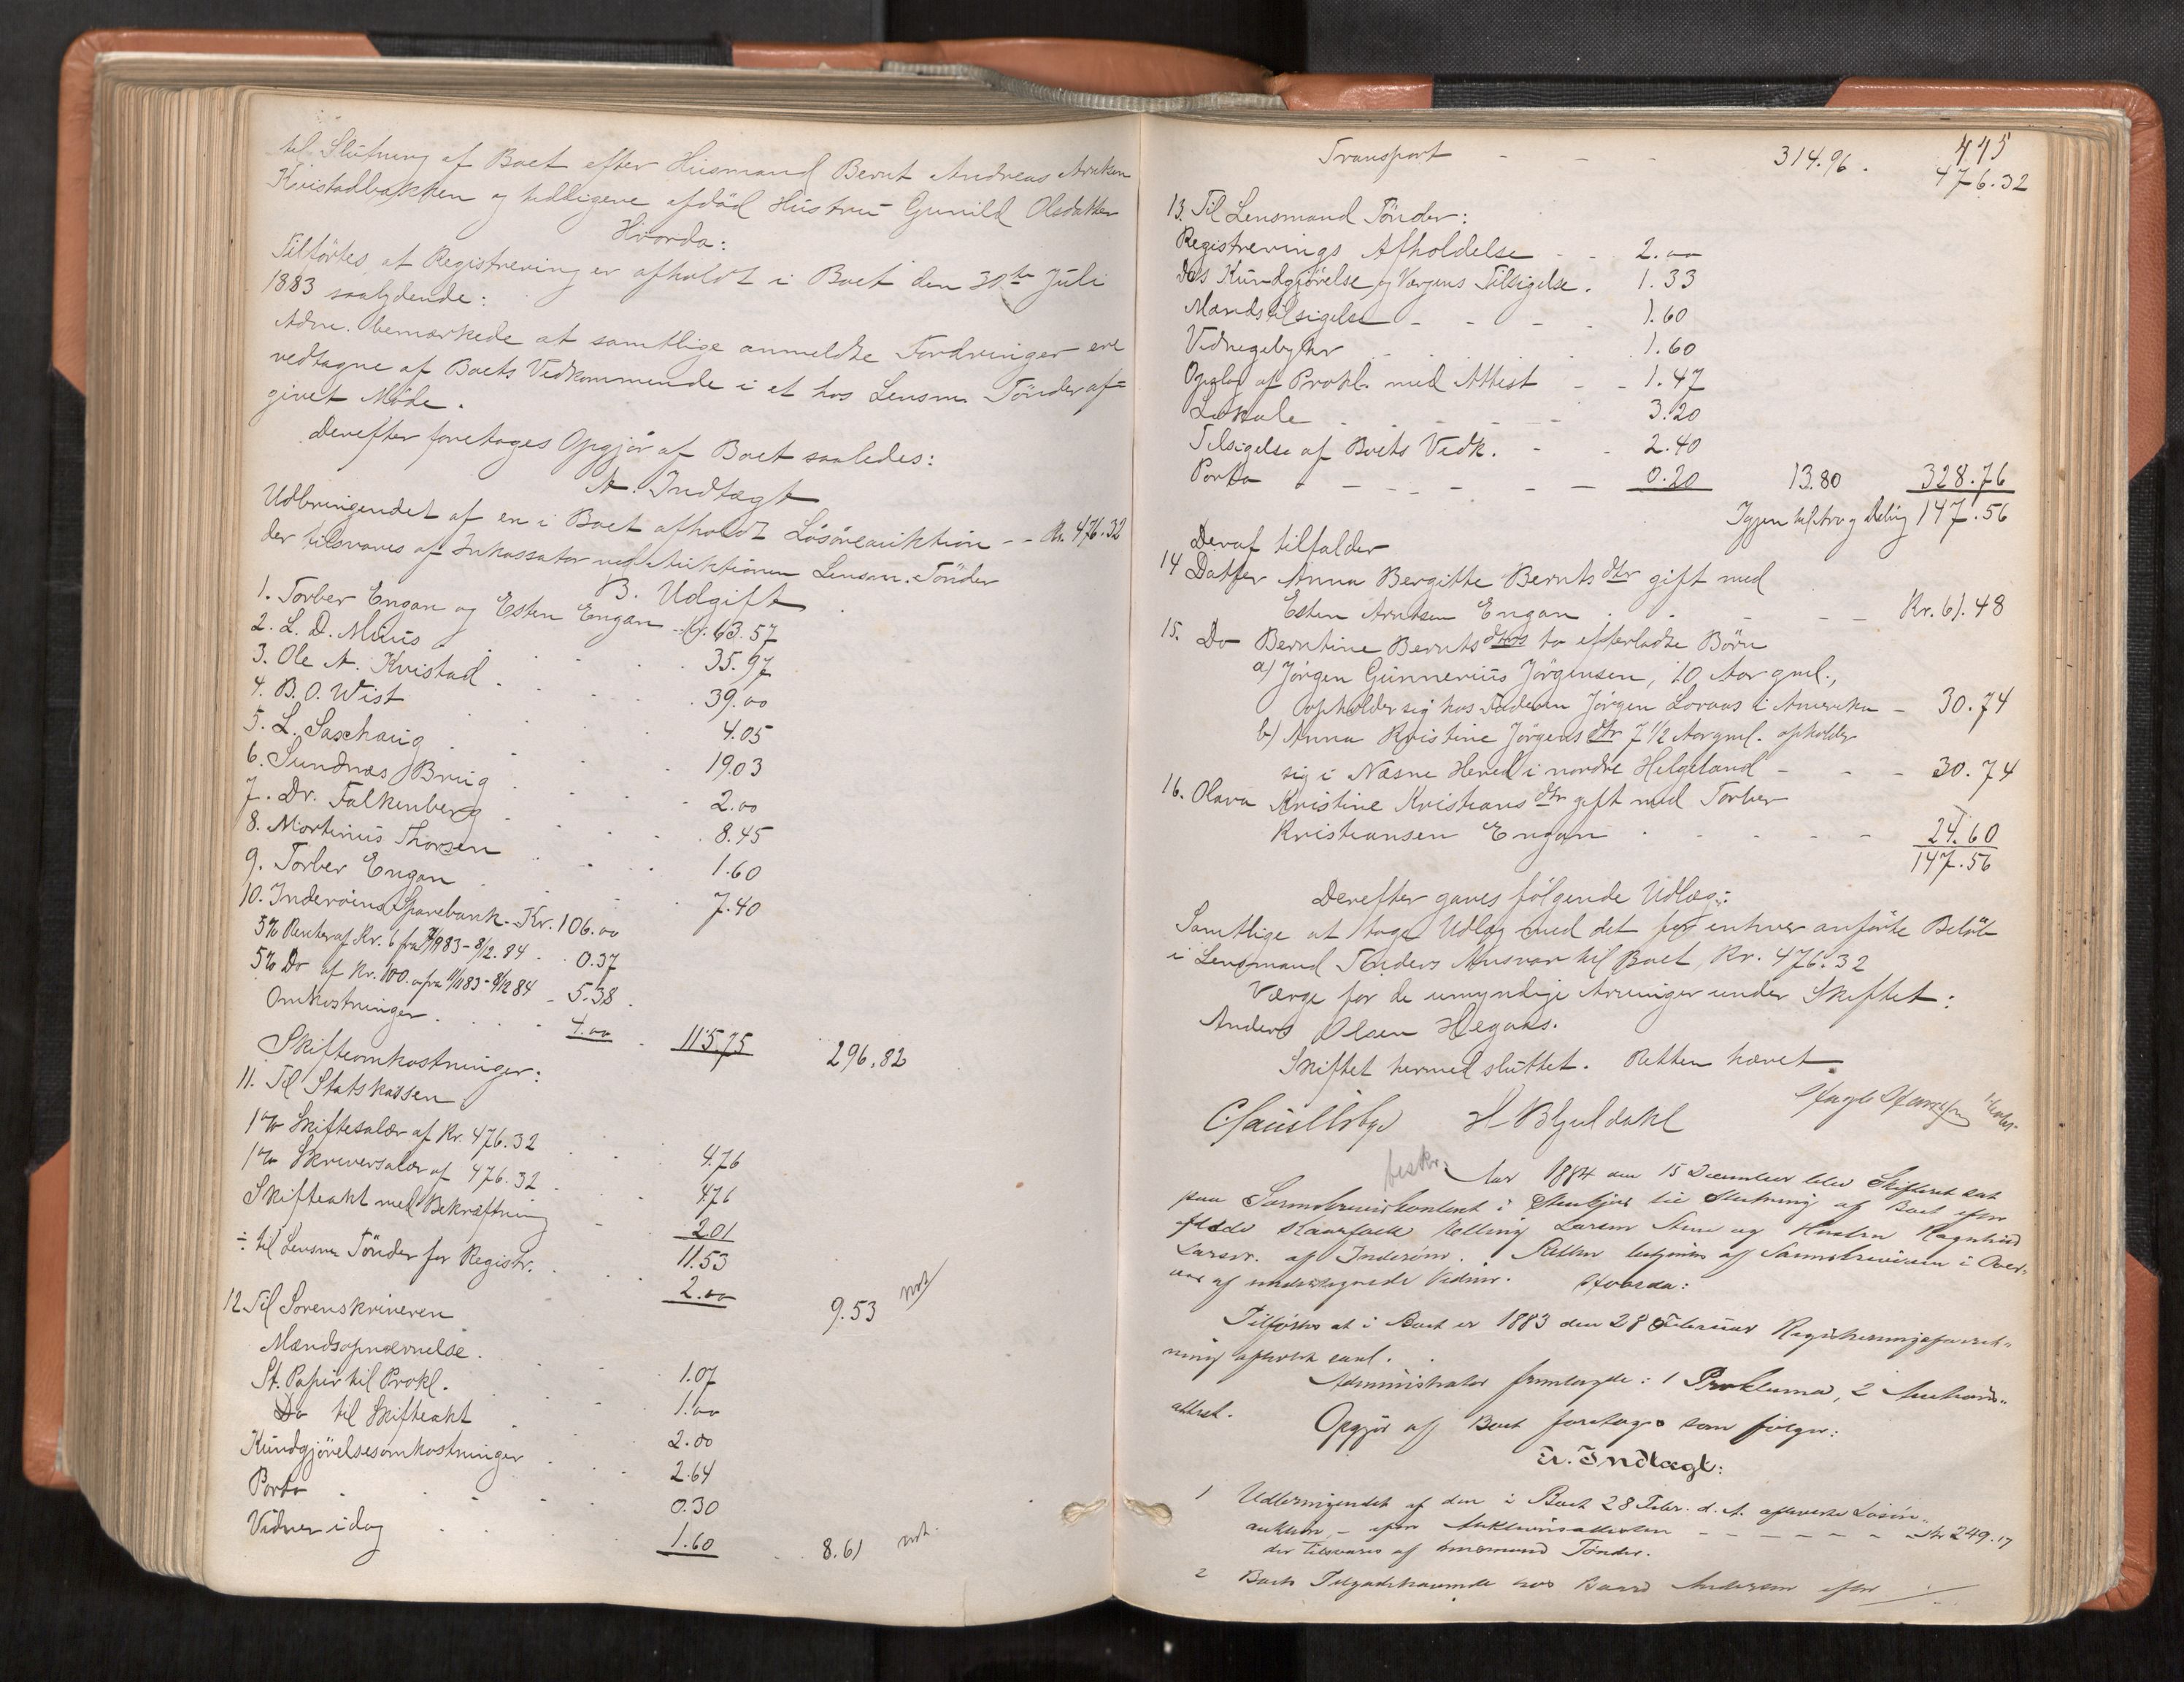 til Slutning af Boet efter Husmand Bernt Andreas Arntsen
Kvistadbakken og tidligere afdöd Hustru Gunild Olsdatter
Hvorda:
Tilförtes at Registrering er afholdt i Boet den 30te Juli
1883 saalydende:
Adm. bemærkede at samtlige anmeldte Fordringer ere
vedtagne af Boets Vedkommende i et hos Lensm. Tönder af=
givet Möde.
Derefter foretages Opgjör af Boet saaledes:
A. Indtægt
Udbringendet af en i Boet afholdt Lösöreauktion - - Kr. 476.32
der tilsvares af Inkassator ved Auktionen Lensm. Tönder
B. Udgift
1. Torber Engan og Esten Engan - Kr. 63.57
2. L. D. Muus . . . 35.97
3. Ole A. Kvistad . . . 39.00
4. B. O. Wist . . . 4.05
5. L. Saxhaug . . . 19.03
6. Sundnæs Brug . . . 2.00
7. Dr. Falkenberg . . . 8.45
8. Martinus Thorsen . . . 1.60
9. Torber Engan . . . 7.40
10. Inderöens Sparebank - Kr. 106.00
5% Renter af Kr. 6 fra 83 - 8/12.84 . 0.37
5% Do af Kr. 100.00 fra 11/11 83 - 8/12 84 - 5.38
Omkostninger . . . 4.00 . 115.75 296.82
Skifteomkostninger:
11. Til Statskassen
1% Skiftesalær af Kr. 476.32 . . 4.76
1% Skriversalær af 476.32 . . 4.76
Skifteakt med Bekræftning - 2.01
11.53
÷ til Lensm. Tönder for Registr. . . 2.00 9.53 not
12. Til Sorenskriveren
Mændsopnævnelse . . . 1.07
St. Papir til Prokl. . . 1.00
Do til Skifteakt . . 2.00
Kundgjörelsesomkostninger . . 2.64
Porto . . . 0.30
Vidner idag . . . 1.60 . . 8.61 not.
445
Transport - - - 314.96. 476.32
13. Til Lensmand Tönder:
Registrerings Afholdelse - - 2.00
Dets Kundgjörelse og Værgens Tilsigelse . 1.33
Mændstilsigelse - - - 1.60
Vidnegebyhr . . . 1.60
Opslag af Prokl. med Attest - - 1.47
Lokale . - - - 3.20
Tilsigelse af Boets Vedk. - - 2.40
Porto - - - - 0.20 13.80 328.76
Igjen til Arv og Deling 147.56
Deraf tilfalder
14 Datter Anna Bergitte Berntsdtr gift med
Esten Arntsen Engan . . - - Kr. 61.48
15. Do Berntine Berntsdtrs to efterladte Börn
a) Jörgen Gunnerius Jörgensen, 10 Aar gml.,
opholder sig hos Faderen Jörgen Loraas i Amerika - 30.74
b) Anna Kristine Jörgensdtr 7 1/2 Aar gml. opholder
sig i Næsne Hered i nordre Helgeland - - - 30.74
16. Olava Kristine Kristiansdtr gift med Torber
Kristiansen Engan . . . - - 24.60
147.56
Derefter gaves fölgende Udlæg:
Samtlige at tage Udlæg med det for enhver anförte Belöb
i Lensmand Tönders Ansvar til Boet, Kr. 476.32
Værge for de umyndige Arvinger under Skiftet:
Anders Olsen Hegaas.
Skiftet hermed sluttet. Retten hævet.
beskr. Aar 1884 den 15 December blev Skifteret sat
paa Sorenskriverkontoret i Stenkjær til Slutning af Boet efter
afdöde Kaarfolk Larsen og Hustru Ragnhild
Larsdr. af Inderöen. Retten betjenes af Sorenskriveren i Over-
vær af undertegnede Vidner. Hvorda:
Tilførtes at i Boet er 1883 den 28 Februar Registreringsforret-
ning afholdt saal.
Administrator fremlagde: 1 Proklama, 2 Auktions-
attest.
Opgjör af Boet foretages som følger:
A. Indtægt:
1 Udbringendet af den i Boet 28 Febr. d. A. afholdte Lösöre-
auktion, - efter Auktionsattesten - - - - - Kr 249.17
der tilsvares af Lensmand Tönder.
2 Boets Tilgodehavende hos Baard Andersen efter